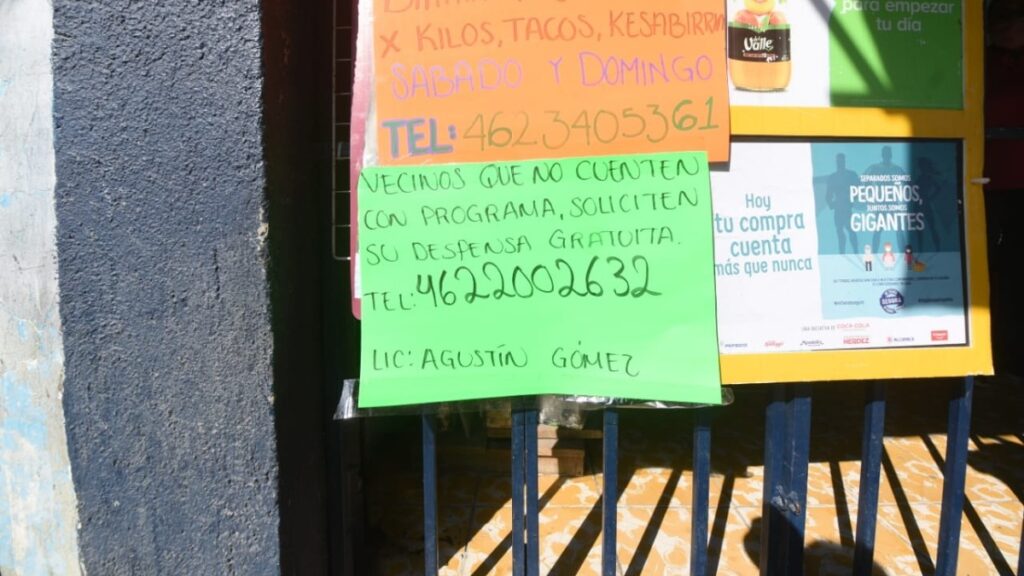 X KILOS, TACOS, KESABIRRIA
SABADO Y DOMINGO
TEL: 4623405361
VECINOS QUE NO CUENTEN
CON PROGRAMA, SOLICITEN
SU DESPENSA GRATUITA.
TEL: 4622002632
LIC: AGUSTÍN GÓMEZ
Valle
para empezar
tu día
Hoy
tu compra
cuenta
más que nunca
SEPARADOS SOMOS
PEQUEÑOS,
JUNTOS SOMOS
GIGANTES
UNA INICIATIVA DE COCA-COLA
HERDEZ